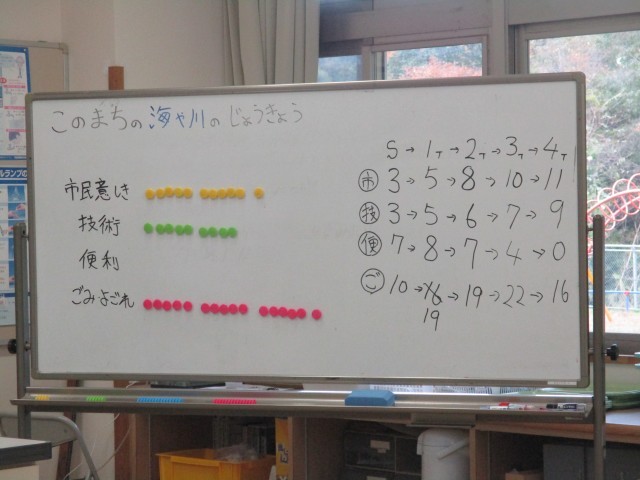 このまちの海や川のじょうきょう
市民意しき
技術
便利
ごみよごれ
S→1T→2T→3T→4T
市 3→5→8→10→11
技 3→5→6→7→9
便 7→8→7→4→0
ご 10→18→19→22→16
19